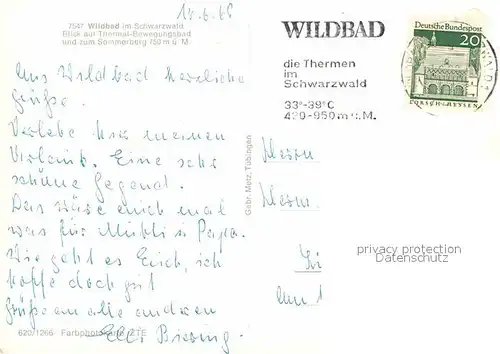 10.6.68
7547 Wildbad im Schwarzwald
Blick auf Thermal-Bewegungsbad
und zum Sommerberg 750 m ü. M.
Aus Wildbad herzliche
Grüße.
Verlebe hier meinen
Urlaub. Eine sehr
schöne Gegend.
Das wäre auch mal
was für Mutti u Papa.
Wie geht es Euch, ich
hoffe doch gut
Grüße an alle anderen
Elli
620/1266 Farbphoto
Gebr. Metz, Tübingen
WILDBAD
die Thermen
im
Schwarzwald
33°-39°C
420-950 m ü. M.
Deutsche Bundespost
20
LORSCH/HESSEN
Herrn
Herm.
privacy protection
DELCAMPE